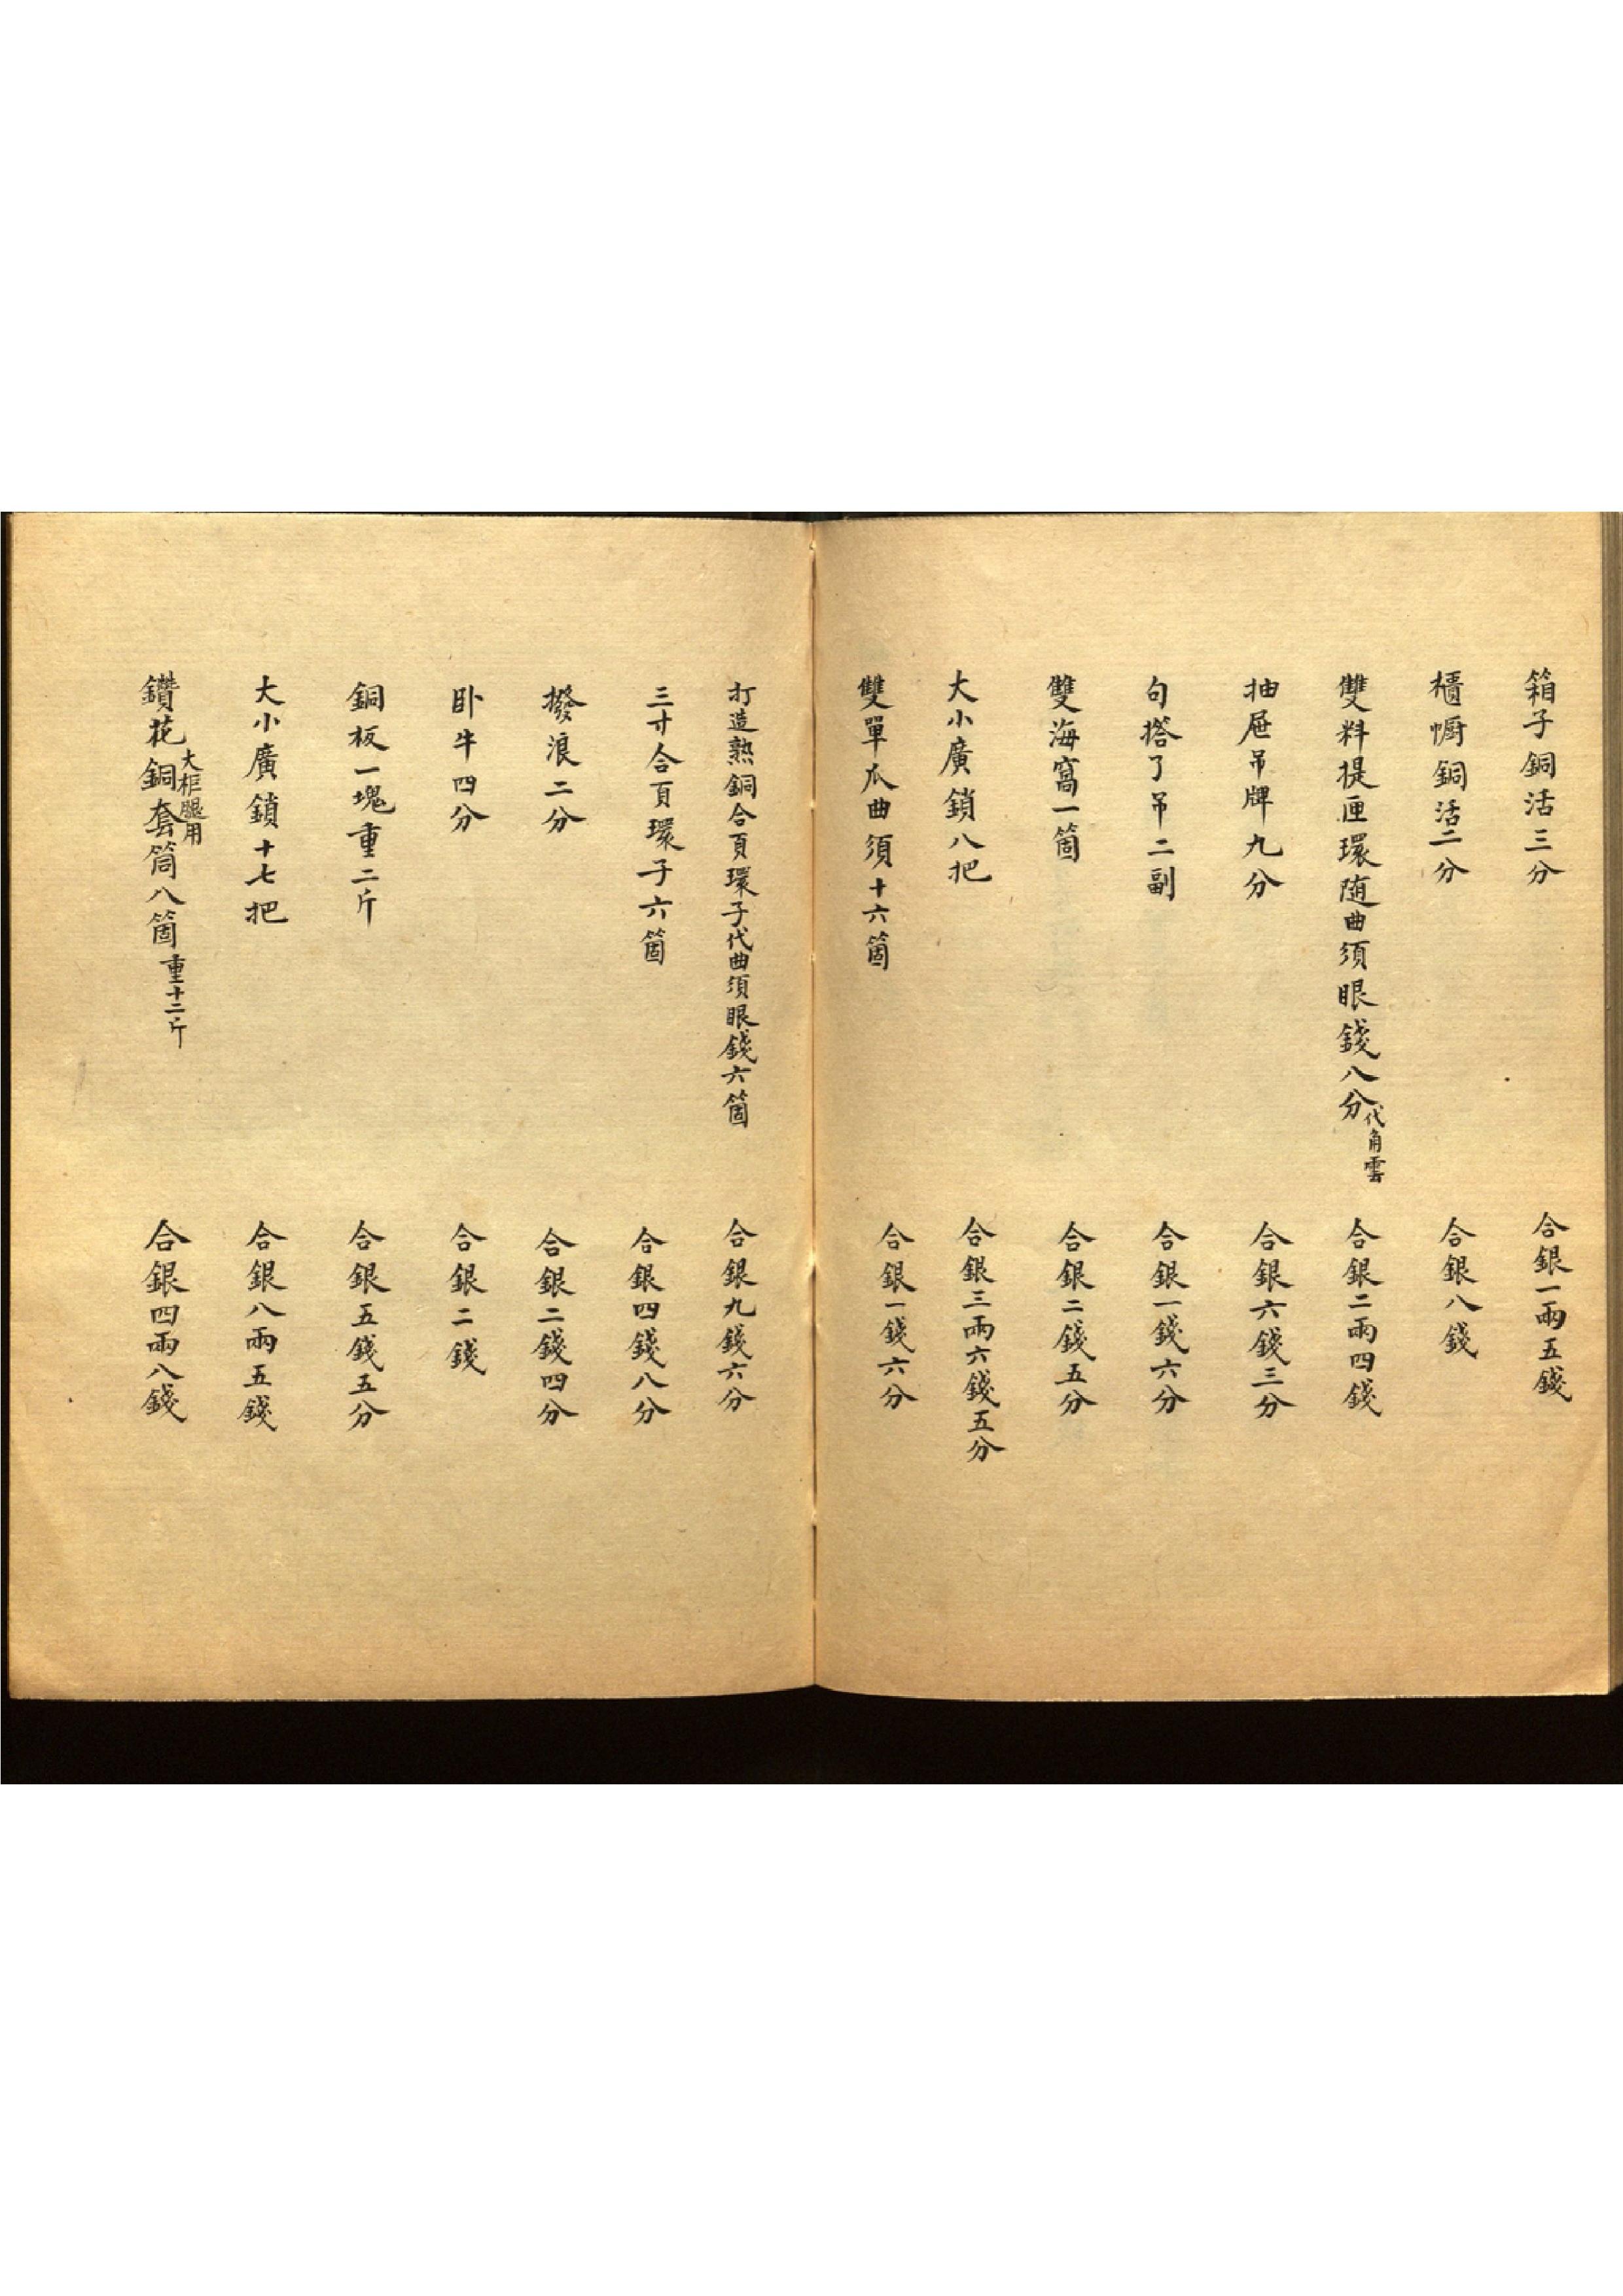 箱子銅活三分 合銀一兩五錢
櫃幮銅活二分 合銀八錢
雙料提匣環随曲須眼錢八分代角雲 合銀二兩四錢
抽屉吊牌九分 合銀六錢三分
句撘了吊二副 合銀一錢六分
雙海窩一箇 合銀二錢五分
大小廣鎖八把 合銀三兩六錢五分
雙單瓜曲須十六箇 合銀一錢六分
打造熟銅合頁環子代曲須眼錢六箇 合銀九錢六分
三寸合頁環子六箇 合銀四錢八分
撥浪二分 合銀二錢四分
卧牛四分 合銀二錢
銅板一塊重二斤 合銀五錢五分
大小廣鎖十七把 合銀八兩五錢
鑽花銅套筒八箇大柜腿用重十二斤 合銀四兩八錢